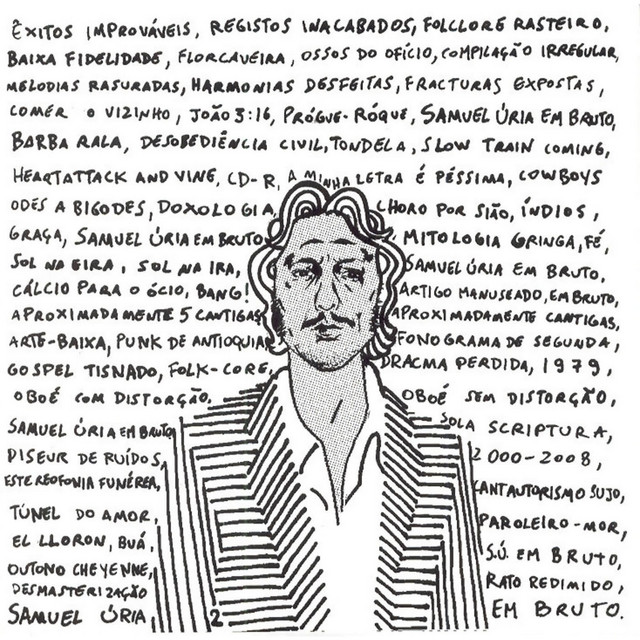 ÊXITOS IMPROVÁVEIS, REGISTOS INACABADOS, FOLCLORE RASTEIRO,
BAIXA FIDELIDADE, FLORCAVEIRA, OSSOS DO OFÍCIO, COMPILAÇÃO IRREGULAR,
MELODIAS RASURADAS, HARMONIAS DESFEITAS, FRACTURAS EXPOSTAS,
COMER O VIZINHO, JOÃO 3:16, PRÓGUE-RÓQUE, SAMUEL ÚRIA EM BRUTO,
BARBA RALA, DESOBEDIÊNCIA CIVIL, TONDELA, SLOW TRAIN COMING,
HEARTATTACK AND VINE, CD-R, A MINHA LETRA É PÉSSIMA, COWBOYS
ODES A BIGODES, DOXOLOGIA, CHORO POR SIÃO, ÍNDIOS,
GRAÇA, SAMUEL ÚRIA EM BRUTO MITOLOGIA GRINGA, FÉ,
SOL NA EIRA, SOL NA IRA, SAMUEL ÚRIA EM BRUTO,
CÁLCIO PARA O ÓCIO, BANG! ARTIGO MANUSEADO, EM BRUTO,
APROXIMADAMENTE 5 CANTIGAS APROXIMADAMENTE CANTIGAS,
ARTE-BAIXA, PUNK DE ANTIOQUIA FONOGRAMA DE SEGUNDA,
GOSPEL TISNADO, FOLK-CORE, DRACMA PERDIDA, 1979,
OBOÉ COM DISTORÇÃO, OBOÉ SEM DISTORÇÃO,
SAMUEL ÚRIA EM BRUTO, SOLA SCRIPTURA,
DISEUR DE RUÍDOS, 2000-2008,
ESTEREOFONIA FUNÉREA, CANTAUTORISMO SUJO,
TÚNEL DO AMOR, PAROLEIRO-MOR,
EL LLORON, BUÁ, S.Ú. EM BRUTO,
OUTONO CHEYENNE, RATO REDIMIDO,
DESMASTERIZAÇÃO
SAMUEL ÚRIA 2 EM BRUTO.